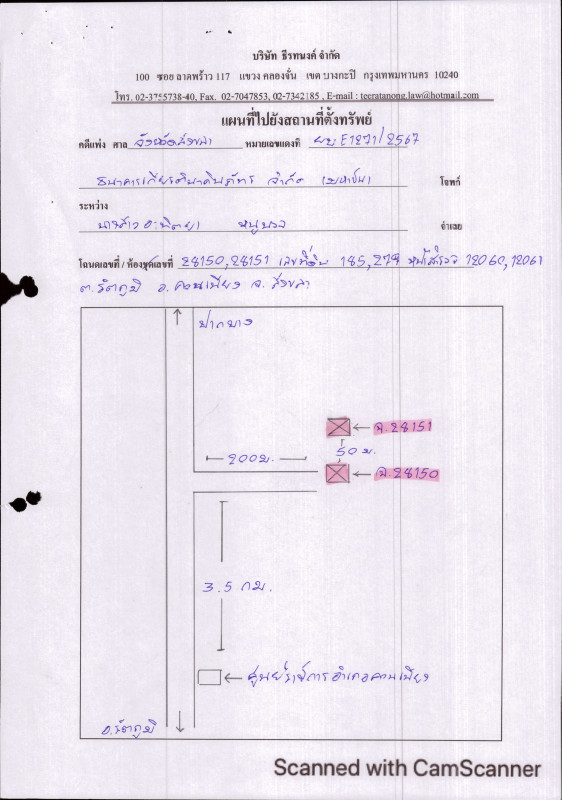 บริษัท ธีรทนงค์ จำกัด
100 ซอย ลาดพร้าว 117 แขวง คลองจั่น เขต บางกะปิ กรุงเทพมหานคร 10240
โทร. 02-3755738-40, Fax. 02-7047853, 02-7342185 , E-mail : teeratanong.law@hotmail.com
แผนที่ไปยังสถานที่ตั้งทรัพย์
คดีแพ่ง ศาล จังหวัดสงขลา หมายเลขแดงที่ ผบ E1271/2567
ธนาคารเกียรตินาคินภัทร จำกัด (มหาชน) โจทก์
ระหว่าง
นางสาว อาทิตยา หนูนวล จำเลย
โฉนดเลขที่ / ห้องชุดเลขที่ 28150,28151 เลขที่ดิน 185,279 หน้าสำรวจ 12060,12061
ต.รัตภูมิ อ.ควนเนียง จ.สงขลา
ปากบาง
ฉ.28151
200ม.
50 ม.
ฉ.28150
3.5 กม.
ศูนย์ราชการอำเภอควนเนียง
อ.รัตภูมิ
Scanned with CamScanner